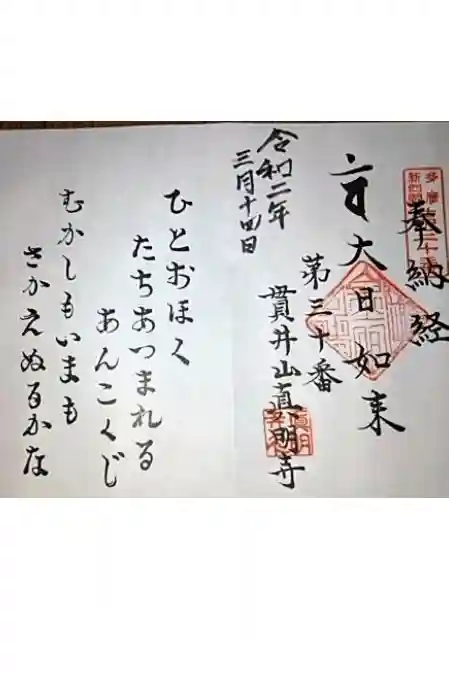 奉納経
大日如来
第三十番
貫井山真明寺
令和二年
三月十四日
ひとおほく
たちあつまれる
あんこくじ
むかしもいまも
さかえぬるかな